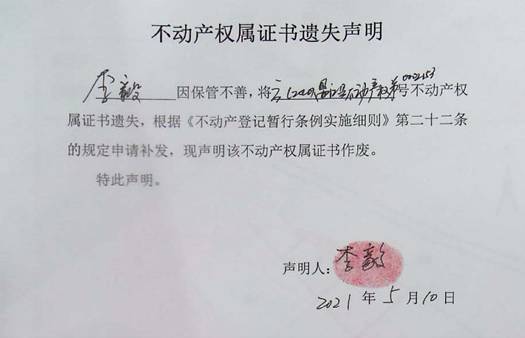 不动产权属证书遗失声明
李毅因保管不善，将 号不动产权
属证书遗失，根据《不动产登记暂行条例实施细则》第二十二条
的规定申请补发，现声明该不动产权属证书作废。
特此声明。
声明人：李毅
2021年5月10日